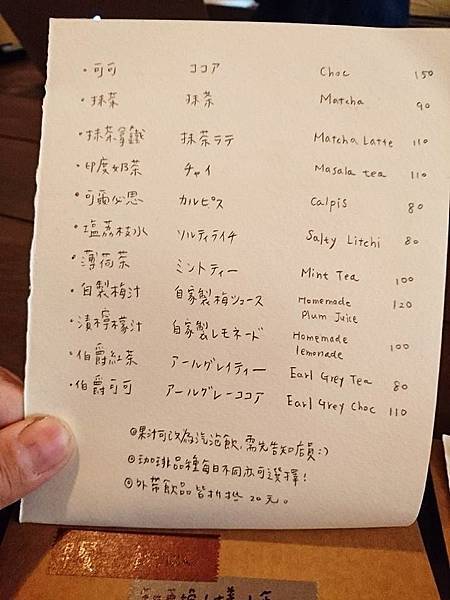 ・可可 ココア Choc 150
・抹茶 抹茶 Matcha 90
・抹茶拿鐵 抹茶ラテ Matcha Latte 110
・印度奶茶 チャイ Masala tea 110
・可爾必思 カルピス Calpis 80
・塩荔枝水 ソルティライチ Salty Litchi 80
・薄荷茶 ミントティー Mint Tea 100
・自製梅汁 自家製梅ジュース Homemade Plum Juice 120
・漬檸檬汁 自家製レモネード Homemade lemonade 100
・伯爵紅茶 アールグレイティー Earl Grey Tea 80
・伯爵可可 アールグレーココア Earl Grey Choc 110
◎果汁可改為汽泡飲,需先告知店員:)
◎咖啡品種每日不同亦可選擇!
◎外帶飲品皆折抵20元。
早餐